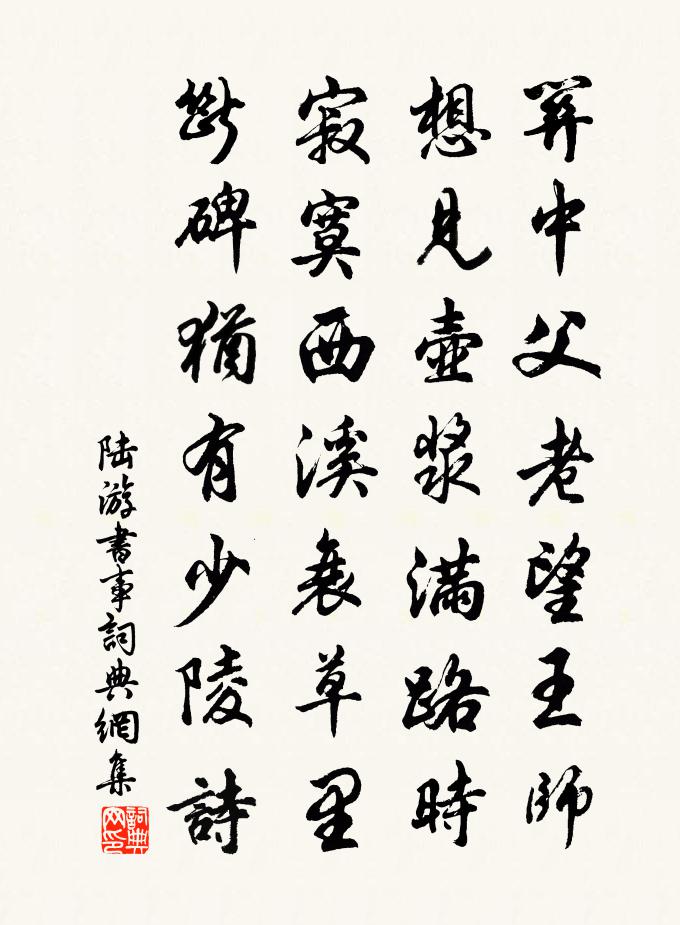 關中父老望王師
想見壺漿滿路時
寂寞西溪衰草里
斷碑猶有少陵詩
陆游書事詞典網集
詞典网印